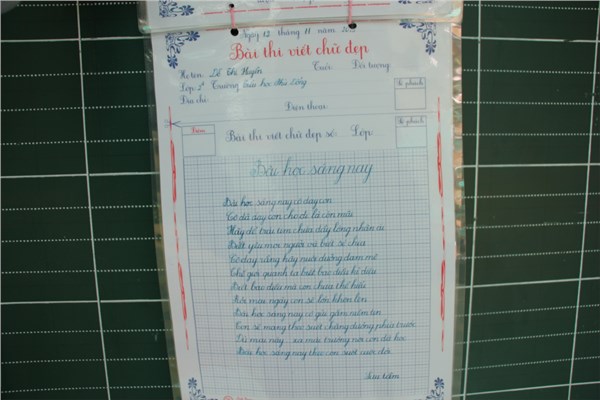 Ngày 12 tháng 11 năm
Bài thi viết chữ đẹp
Họ tên: Lê Thị Huyền Tuổi: Đối tượng:
Lớp: Trường tiểu học
Địa chỉ: Điện thoại:
Số phách
Điểm
Bài thi viết chữ đẹp số: Lớp:
Số phách
Bài học sáng nay
Bài học sáng nay cô dạy con
Cô đã dạy con cho đi là còn mãi
Hãy để trái tim chứa đầy lòng nhân ái
Biết yêu mọi người và biết sẻ chia
Cô dạy rằng hãy nuôi dưỡng đam mê
Thế giới quanh ta biết bao điều kì diệu
Biết bao điều mà con chưa thể hiểu
Mỗi ngày con sẽ lớn khôn lên
Bài học sáng nay cô gửi gắm niềm tin
Con sẽ mang theo suốt chặng đường phía trước
Dù mai này xa mái trường nơi con đã học
Bài học sáng nay theo con suốt cuộc đời.
Sưu tầm